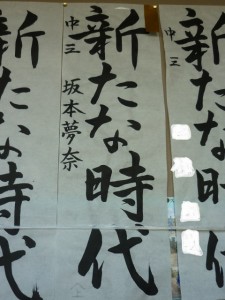 新たな時代
中三
新たな時代
中三 坂本夢奈
新たな時代